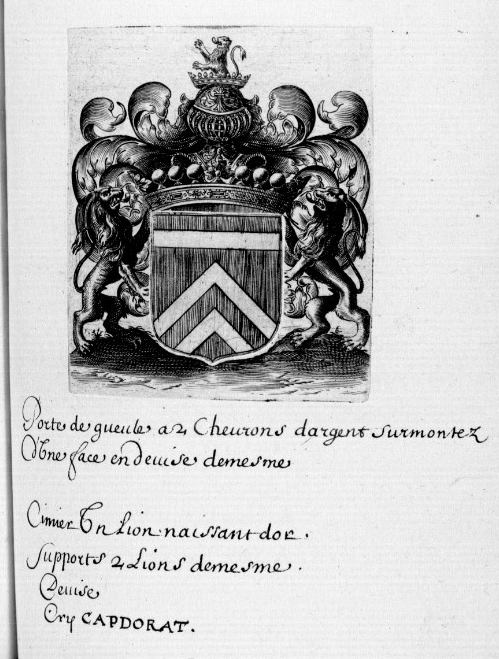 Porte de gueule a 2 Cheurons dargent surmontez
d'Vne face en deuise demesme
Cimier Vn Lion naissant dor.
supports 2 Lions demesme.
Deuise
Cry CAPDORAT.